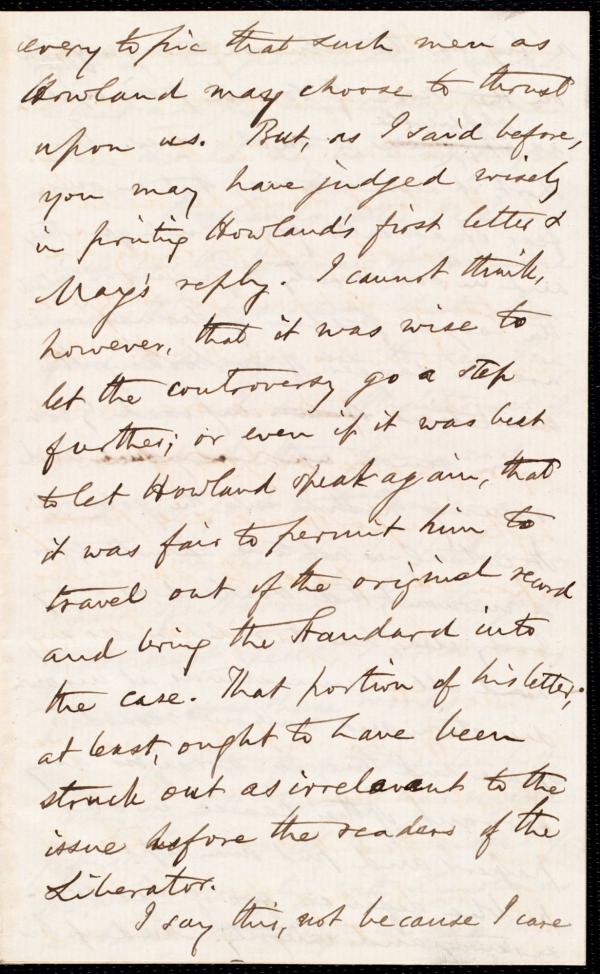 every topic that such men as
Howland may choose to thrust
upon us. But, as I said before,
you may have judged wisely
in printing Howland's first letter &
May's reply. I cannot think,
however, that it was wise to
let the controversy go a step
further; or even if it was best
to let Howland speak again, that
it was fair to permit him to
travel out of the original record
and bring the Standard into
the case. That portion of his letter,
at least, ought to have been
struck out as irrelavant to the
issue before the readers of the
Liberator.
I say this, not because I care